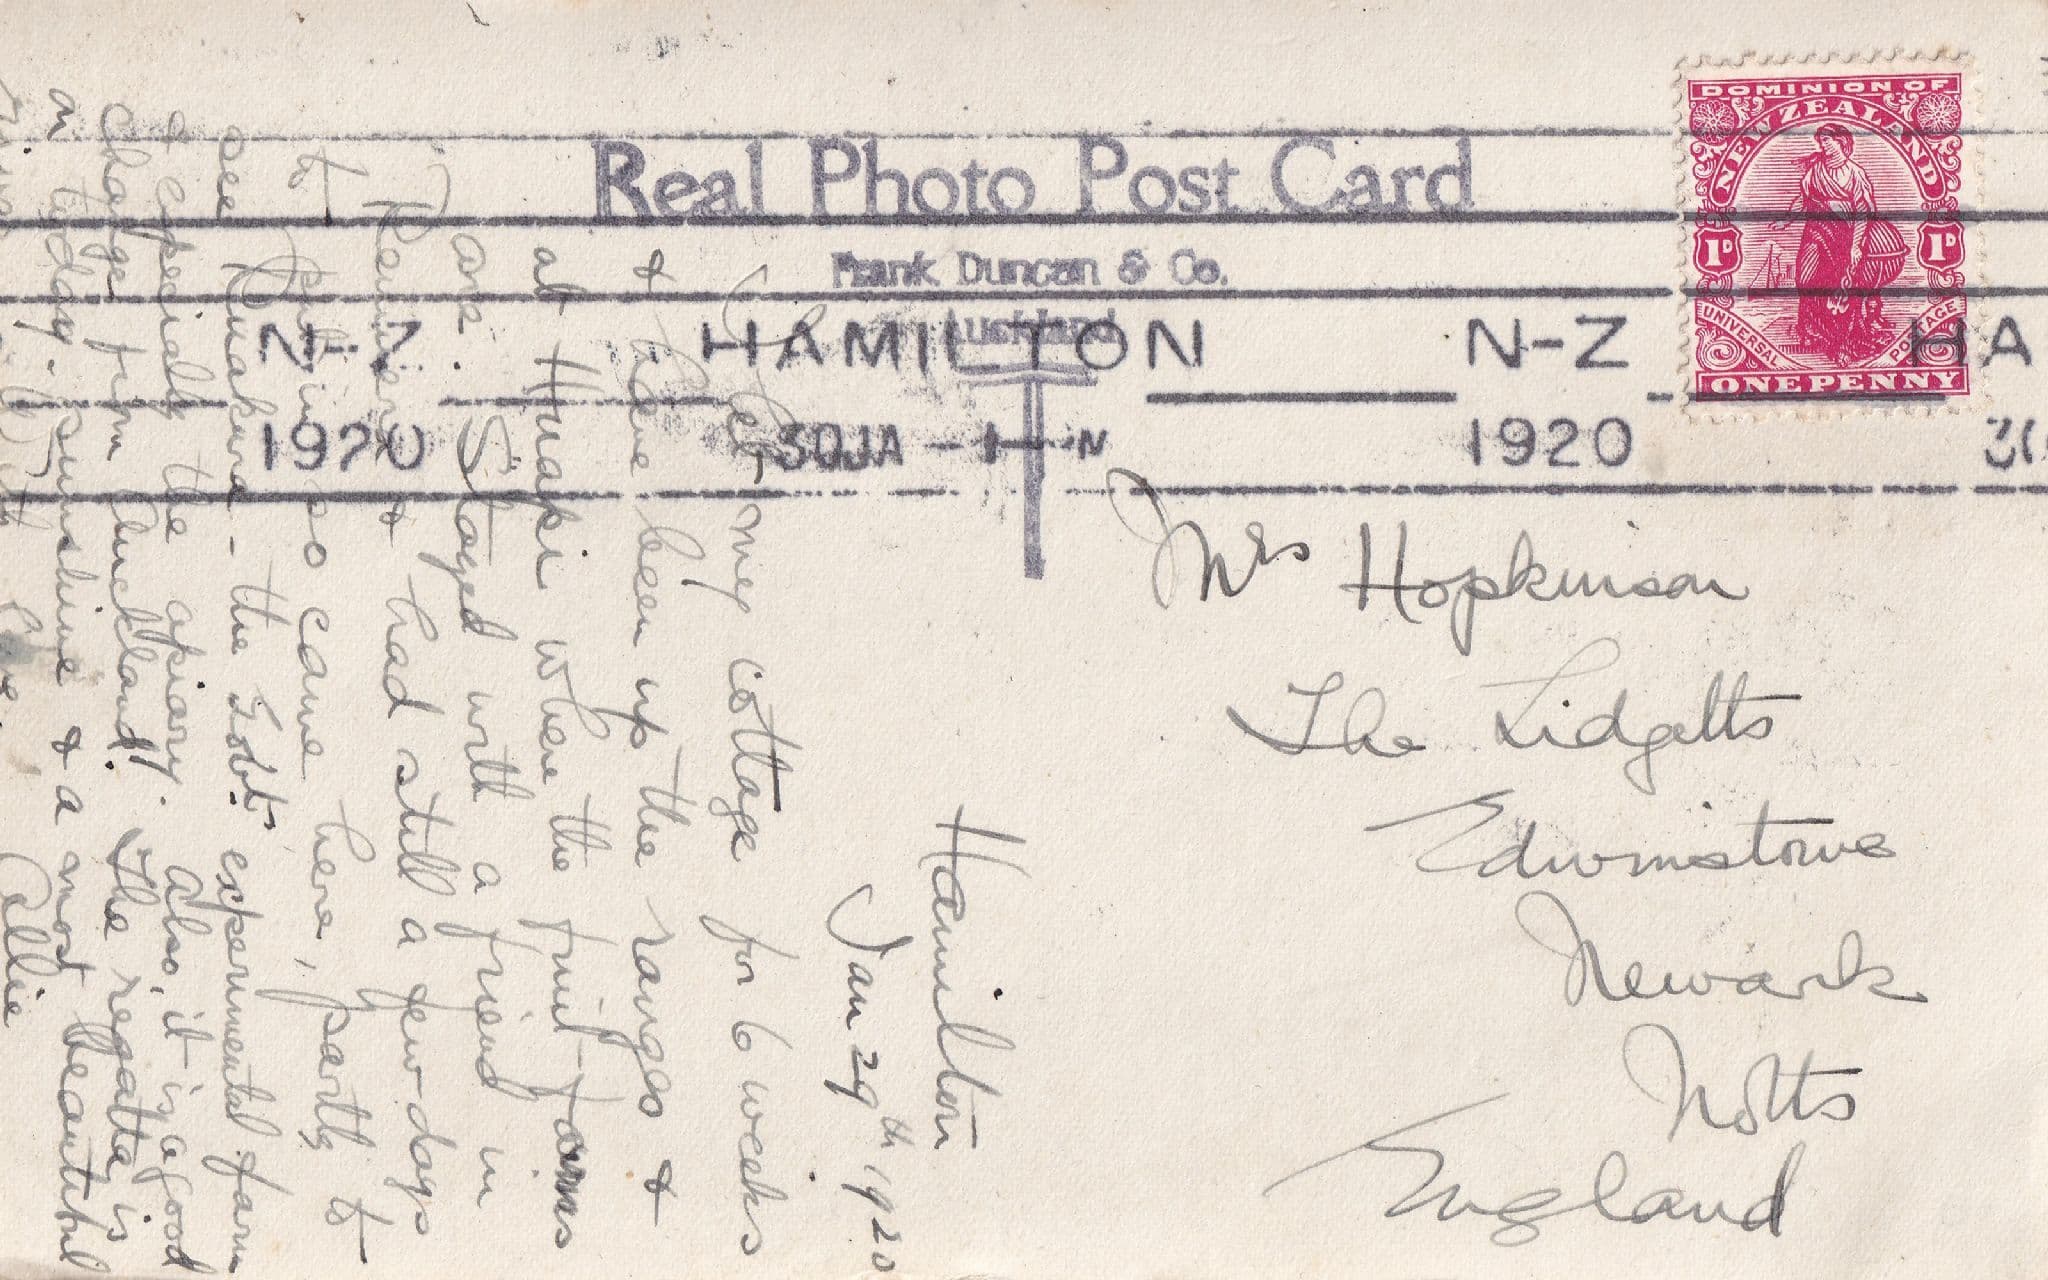 Real Photo Post Card
Frank Duncan & Co.
Auckland
DOMINION OF
NEW ZEALAND
1D 1D
UNIVERSAL POSTAGE
ONE PENNY
N-Z HAMILTON N-Z HA
1920 30JA 1920 30
Mrs Hopkinson
The Lidgetts
Edwinstowe
Newark
Notts
England
Hamilton
Jan 29th 1920
my cottage for 6 weeks
& have been up the ranges &
at Huapi where the fruit farms
are. Stayed with a friend in
& had still a few days
to so came here, partly to
see Ruakura - the Govt. experimental farm
& especially the apiary. Also, it is a good
change from Auckland! The regatta is
on today. Sunshine & a most beautiful
love. Allie